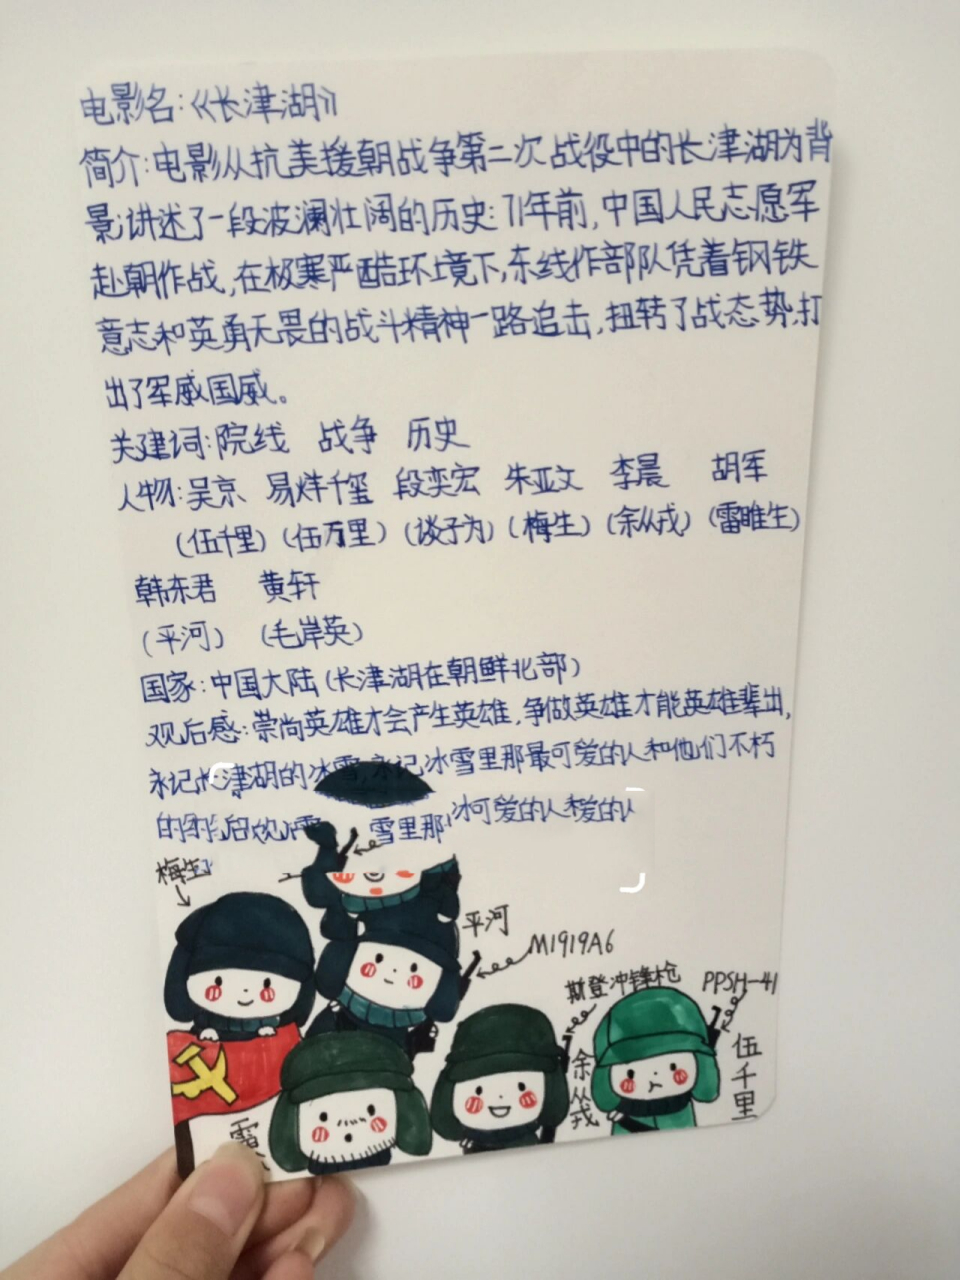 电影名:《长津湖》
简介:电影从抗美援朝战争第二次战役中的长津湖为背
景,讲述了一段波澜壮阔的历史:71年前,中国人民志愿军
赴朝作战,在极寒严酷环境下,东线作部队凭着钢铁
意志和英勇无畏的战斗精神一路追击,扭转了战态势,打
出了军威国威。
关建词:院线 战争 历史
人物:吴京 易烊千玺 段奕宏 朱亚文 李晨 胡军
(伍千里)(伍万里)(谈子为)(梅生)(余从戎)(雷睢生)
韩东君 黄轩
(平河) (毛岸英)
国家:中国大陆(长津湖在朝鲜北部)
观后感:崇尚英雄才会产生英雄,争做英雄才能英雄辈出,
永记长津湖的冰雪,永记冰雪里那最可爱的人和他们不朽
的 雪里那 冰可爱的人 爱的人
梅生
平河
M1919A6
斯登冲锋枪
PPSH-41
余从戎
伍千里
雷